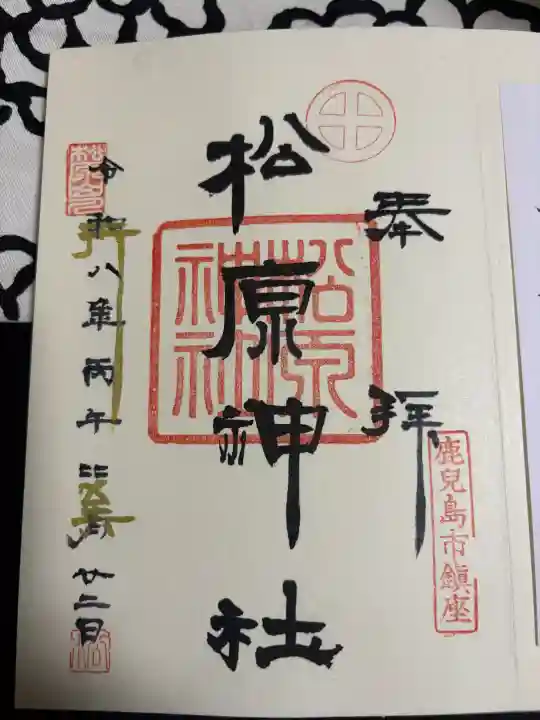 奉拝
鹿児島市鎮座
松原神社
松原神社
令和八年丙午二月廿二日